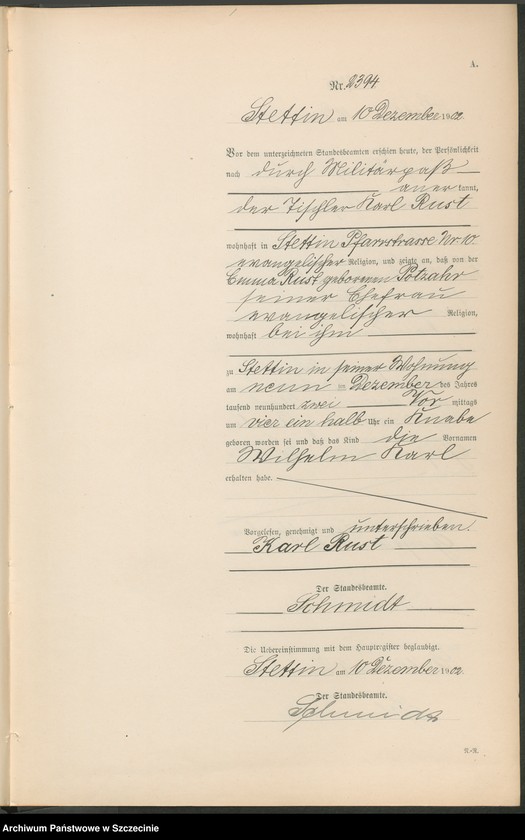 A.
Nr. 2394
Stettin am 10 Dezember 1902.
Vor dem unterzeichneten Standesbeamten erschien heute, der Persönlichkeit
nach durch Militärpaß
anerkannt,
der Tischler Karl Rust
wohnhaft in Stettin Pfarrstrasse Nr. 10.
evangelischer Religion, und zeigte an, daß von der
Emma Rust geborenen Potzahr
seiner Ehefrau
evangelischer Religion,
wohnhaft bei ihm
zu Stettin in seiner Wohnung
am neun ten Dezember des Jahres
tausend neunhundert zwei Vor mittags
um vier ein halb Uhr ein Knabe
geboren worden sei und daß das Kind die Vornamen
Wilhelm Karl
erhalten habe.
Vorgelesen, genehmigt und unterschrieben.
Karl Rust
Der Standesbeamte.
Schmidt
Die Uebereinstimmung mit dem Hauptregister beglaubigt.
Stettin am 10 Dezember 1902.
Der Standesbeamte.
Schmidt
Archiwum Państwowe w Szczecinie